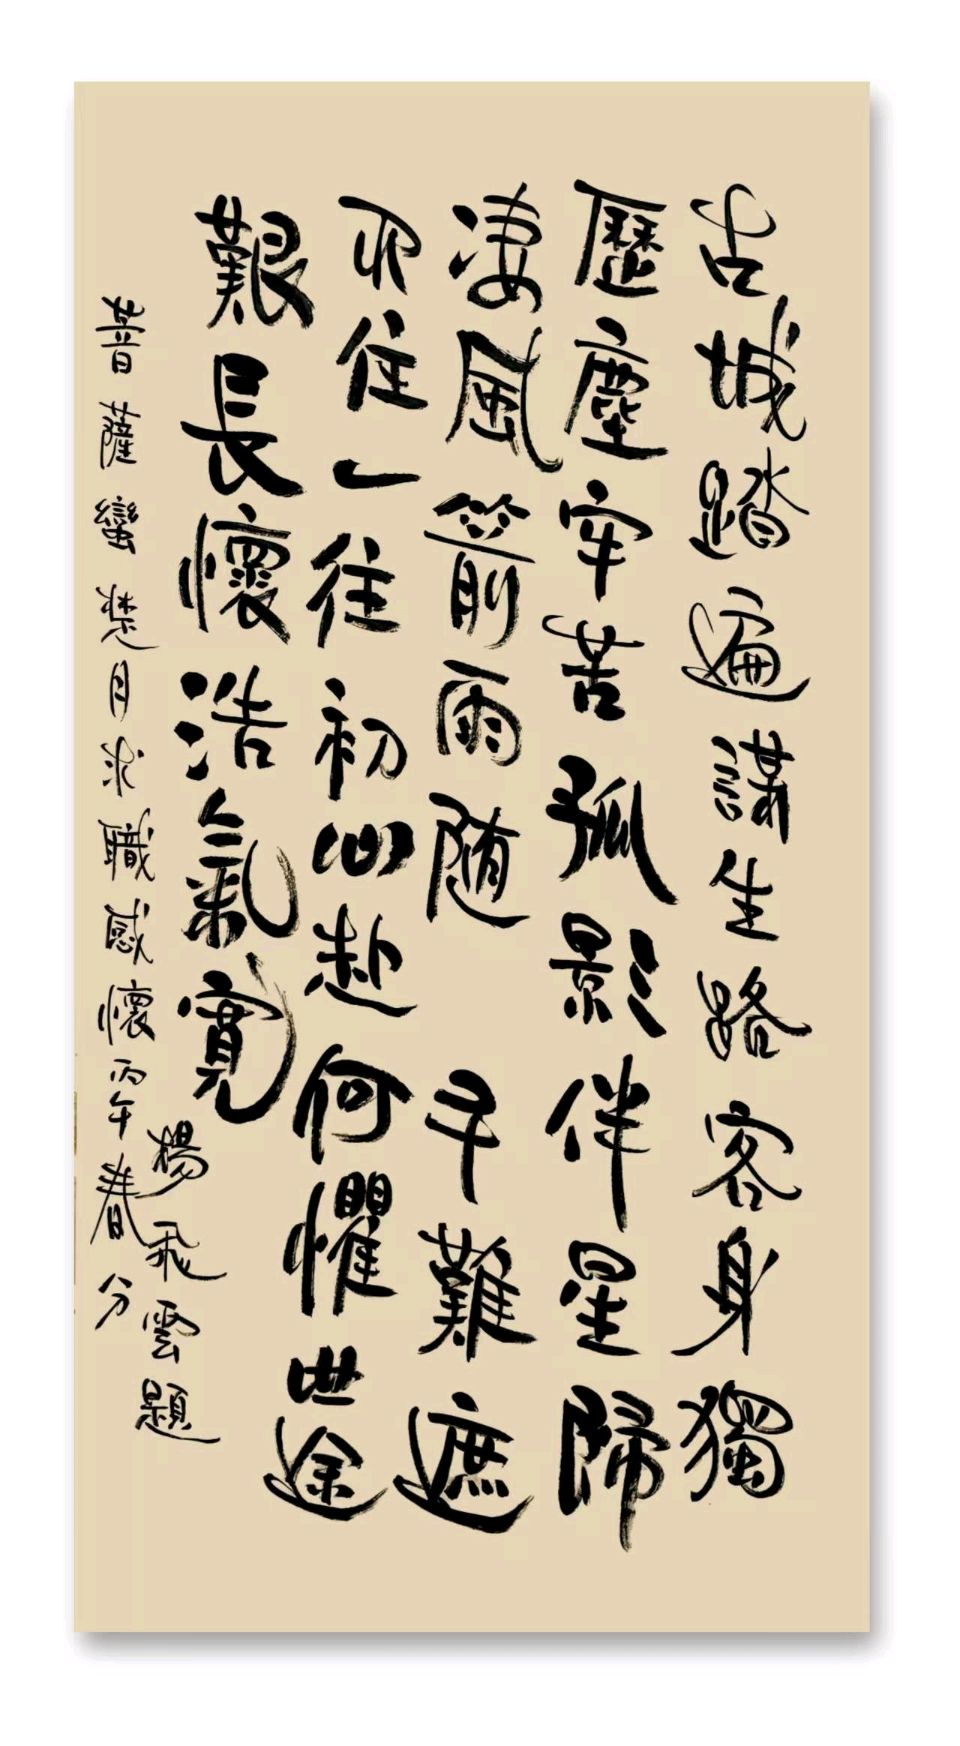 古城踏遍謀生路客身獨
歷塵牢苦孤影伴星歸
淒風箭雨随 手難遮
不住一往初心赴何懼世途
艱長懷浩氣寬
菩薩蠻楚月求職感懷丙午春分
楊飛雲題